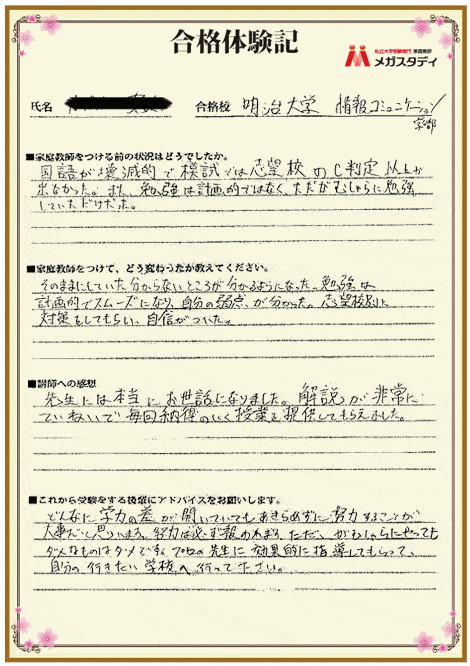 合格体験記
私立大学受験専門 家庭教師
メガスタディ
氏名
合格校 明治大学 情報コミュニケーション
学部
■家庭教師をつける前の状況はどうでしたか。
国語が壊滅的で模試では志望校のC判定以上が
出なかった。また、勉強は計画的ではなく、ただがむしゃらに勉強
していただけだった。
■家庭教師をつけて、どう変わったか教えてください。
そのままにしていた分からないところが分かるようになった。勉強は
計画的でスムーズになり、自分の弱点が分かった。志望校別に
対策をしてもらい、自信がついた。
■講師への感想
先生には本当にお世話になりました。解説が非常に
ていねいで毎回納得のいく授業を提供してもらえました。
■これから受験をする後輩にアドバイスをお願いします。
どんなに学力の差が開いていてもあきらめずに努力することが
大事だと思います。努力は必ず報われます。ただ、がむしゃらにやっても
ダメなものはダメです。プロの先生に効果的に指導してもらって、
自分の行きたい学校へ行って下さい。